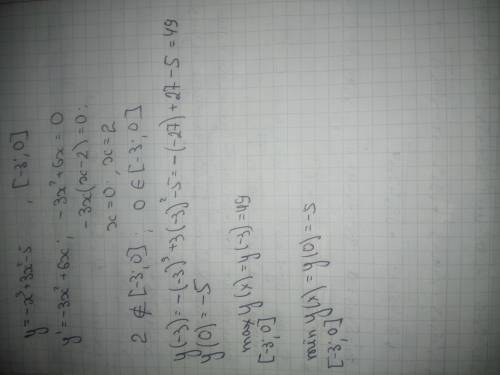 y = -x³+3x²-5 , [-3; 0]
y' = -3x²+6x ; -3x²+6x = 0
-3x(x-2)=0 ;
x=0 ; x=2
2 ∉ [-3; 0] ; 0 ∈ [-3; 0]
y(-3) = -(-3)³+3(-3)²-5 = -(-27)+27-5 = 49
y(0) = -5
max y(x) = y(-3) = 49
[-3; 0]
min y(x) = y(0) = -5
[-3; 0]